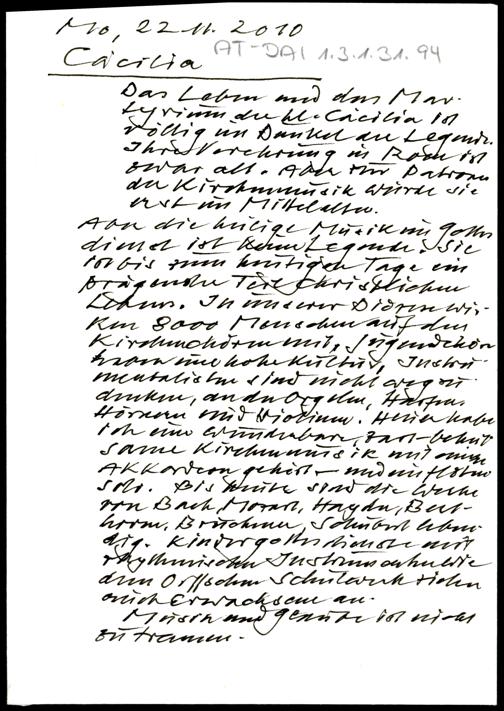 Mo, 22.11.2010
AT-DAI 1.3.1.31.94
Cäcilia
Das Leben und das Mar-
tyrium der hl. Cäcilia ist
völlig im Dunkel der Legende.
Ihre Verehrung in Rom ist
zwar alt. Aber zur Patronin
der Kirchenmusik wurde sie
erst im Mittelalter.
Aber die heilige Musik im Gottes
dienst ist keine Legende. Sie
ist bis zum heutigen Tage ein
prägender Teil christlichen
Lebens. In unserer Diözese wir-
ken 8000 Menschen auf den
Kirchenchören mit, Jugendchöre
haben eine hohe Kultur, Instru
mentalisten sind nicht wegzu
denken, an den Orgeln, Harfen,
Hörnern und Violinen. Heute habe
ich eine wunderbare, zart-behut
same Kirchenmusik mit einem
Akkordeon gehört – und ein Flöten
solo. Bis heute sind die Werke
von Bach, Mozart, Haydn, Beet-
hoven, Bruckner, Schubert leben-
dig. Kindergottesdienste mit
rhythmischen Instrumenten wie
dem Orffschen Schulwerk ziehen
auch Erwachsene an.
Musik und Glaube ist nicht
zu trennen.